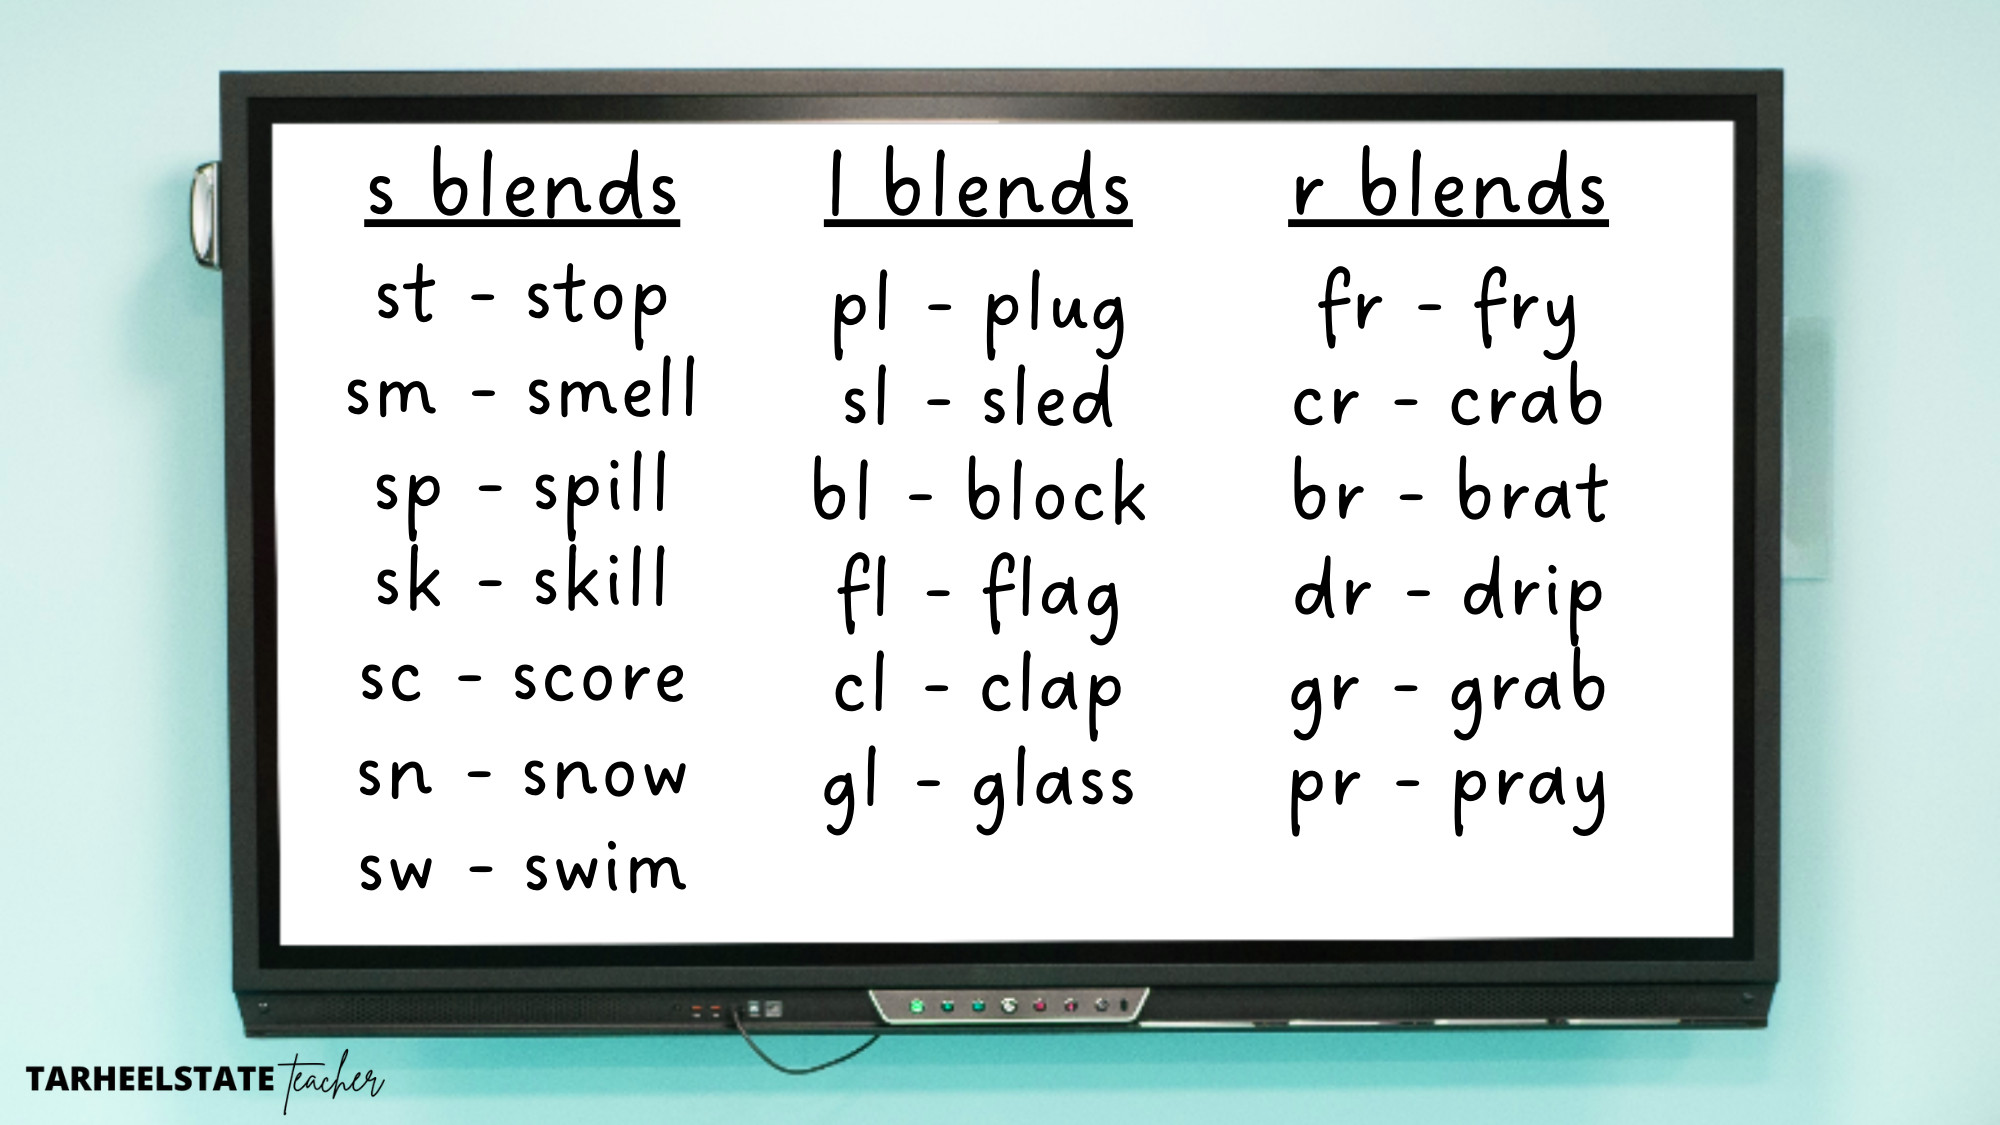 s blends
st - stop
sm - smell
sp - spill
sk - skill
sc - score
sn - snow
sw - swim
l blends
pl - plug
sl - sled
bl - block
fl - flag
cl - clap
gl - glass
r blends
fr - fry
cr - crab
br - brat
dr - drip
gr - grab
pr - pray
TARHEELSTATE teacher